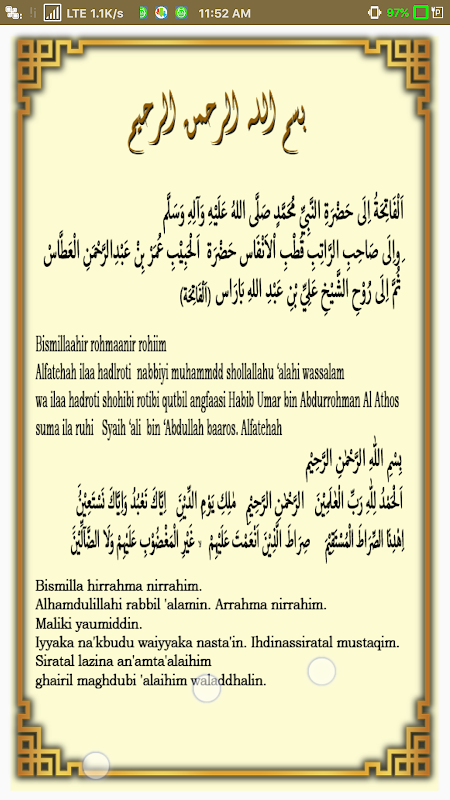 LTE 1.1K/s 11:52 AM 97%
بسم الله الرحمن الرحيم
اَلْفَاتِحَةُ اِلَى حَضْرَةِ النَّبِيِّ مُحَمَّدٍ صَلَّى اللهُ عَلَيْهِ وَآلِهِ وَسَلَّم
وِالَى صَاحِبِ الرَّاتِبِ قُطْبِ اْلاَنْفَاس حَضْرَة اَلْحَبِيْبِ عُمَرْ بِنْ عَبْدِالرَّحْمَنِ الْعَطَّاسْ
ثُمَّ اِلَى رُوْحِ الشَّيْخِ عَلِيِّ بْنِ عَبْدِ اللهِ بَارَاس (اَلْفَاتِحَة)
Bismillaahir rohmaanir rohiim
Alfatehah ilaa hadlroti nabbiyi muhammdd shollallahu ‘alahi wassalam
wa ilaa hadroti shohibi rotibi qutbil angfaasi Habib Umar bin Abdurrohman Al Athos
suma ila ruhi Syaih ‘ali bin ‘Abdullah baaros. Alfatehah
بِسْمِ اللهِ الرَّحْمٰنِ الرَّحِيْمِ
اَلْحَمْدُ لِلّٰهِ رَبِّ الْعٰلَمِيْنَ الرَّحْمٰنِ الرَّحِيْمِ مٰلِكِ يَوْمِ الدِّيْنَ اِيَّاكَ نَعْبُدُ وَاِيَّاكَ نَسْتَعِيْنُ
اِهْدِنَا الصِّرَاطَ الْمُسْتَقِيْمَ صِرَاطَ الَّذِيْنَ اَنْعَمْتَ عَلَيْهِمْ غَيْرِ الْمَغْضُوْبِ عَلَيْهِمْ وَلَا الضَّآلِّيْنَ
Bismilla hirrahma nirrahim.
Alhamdulillahi rabbil 'alamin. Arrahma nirrahim.
Maliki yaumiddin.
Iyyaka na'kbudu waiyyaka nasta'in. Ihdinassiratal mustaqim.
Siratal lazina an'amta'alaihim
ghairil maghdubi 'alaihim waladdhalin.